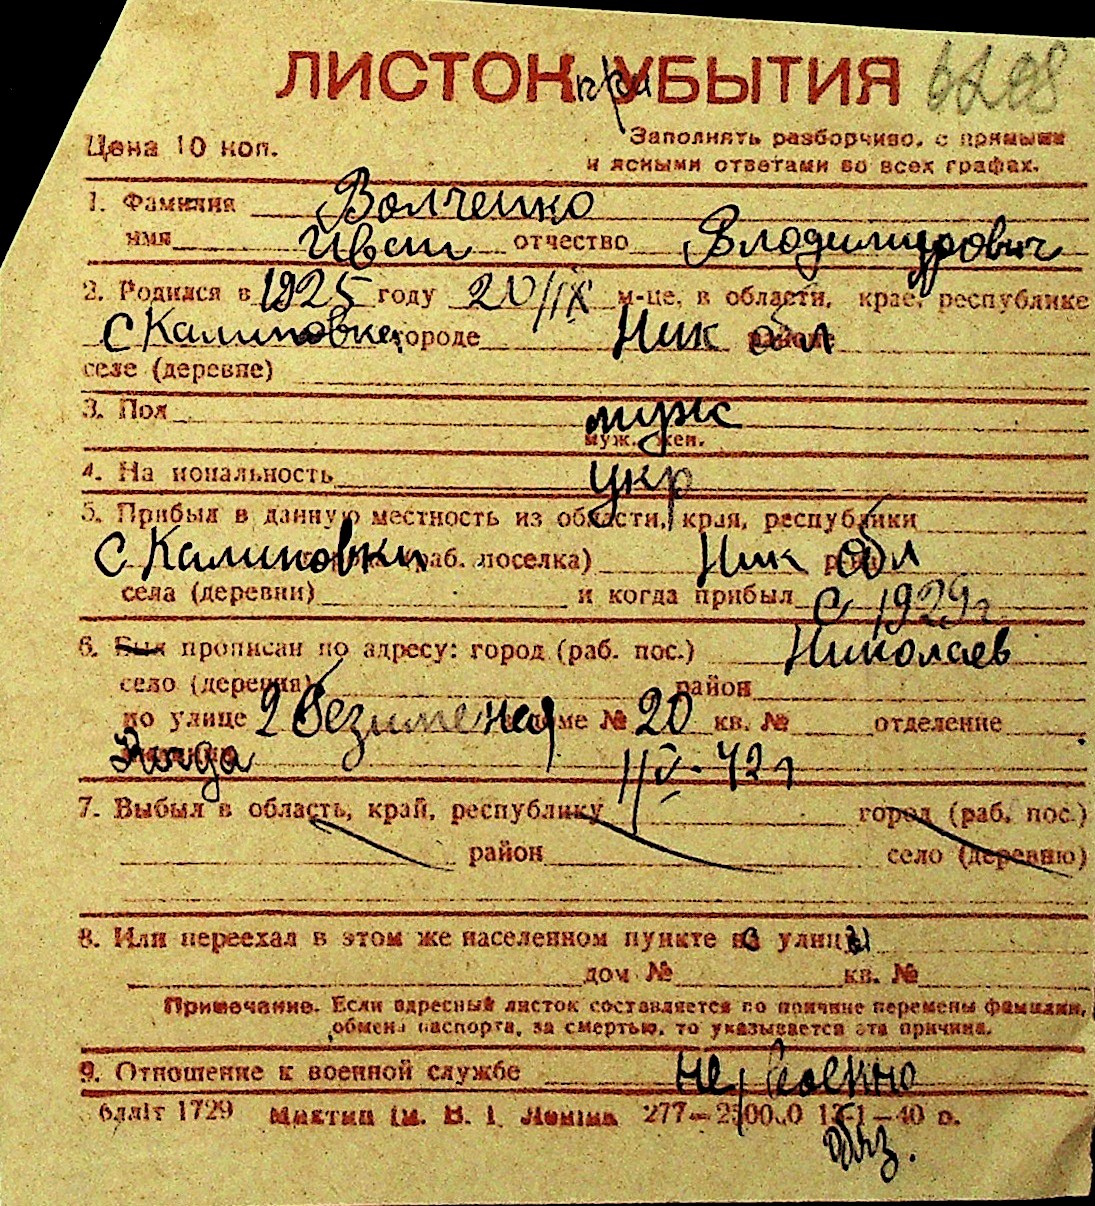 ЛИСТОК УБЫТИЯ при 6208
Цена 10 коп.
Заполнять разборчиво, с прямыми
и ясными ответами во всех графах.
1. Фамилия Волченко
имя Ивен отчество Владимирович
2. Родился в 1925 году 20/IX м-це, в области, крае, республике
С Калиновке городе Ник обл
селе (деревне)
3. Пол муж
муж. жен.
4. На иональность укр
5. Прибыл в данную местность из области, края, республики
С Калиновки (раб. поселка) Ник обл
села (деревни) и когда прибыл с 1929г
6. Был прописан по адресу: город (раб. пос.) Николаев
село (деревня) район
по улице 2 Безименая доме № 20 кв. № отделение
Когда 1/IV-42г
7. Выбыл в область, край, республику город (раб. пос.)
район село (деревню)
8. Или переехал в этом же населенном пункте с улицы
дом № кв. №
Примечание. Если адресный листок составляется по причине перемены фамилии,
обмена паспорта, за смертью, то указывается эта причина.
9. Отношение к военной службе не военно
бллiт 1729 Миктип iм. В. I. Ленiна 277—
обяз.